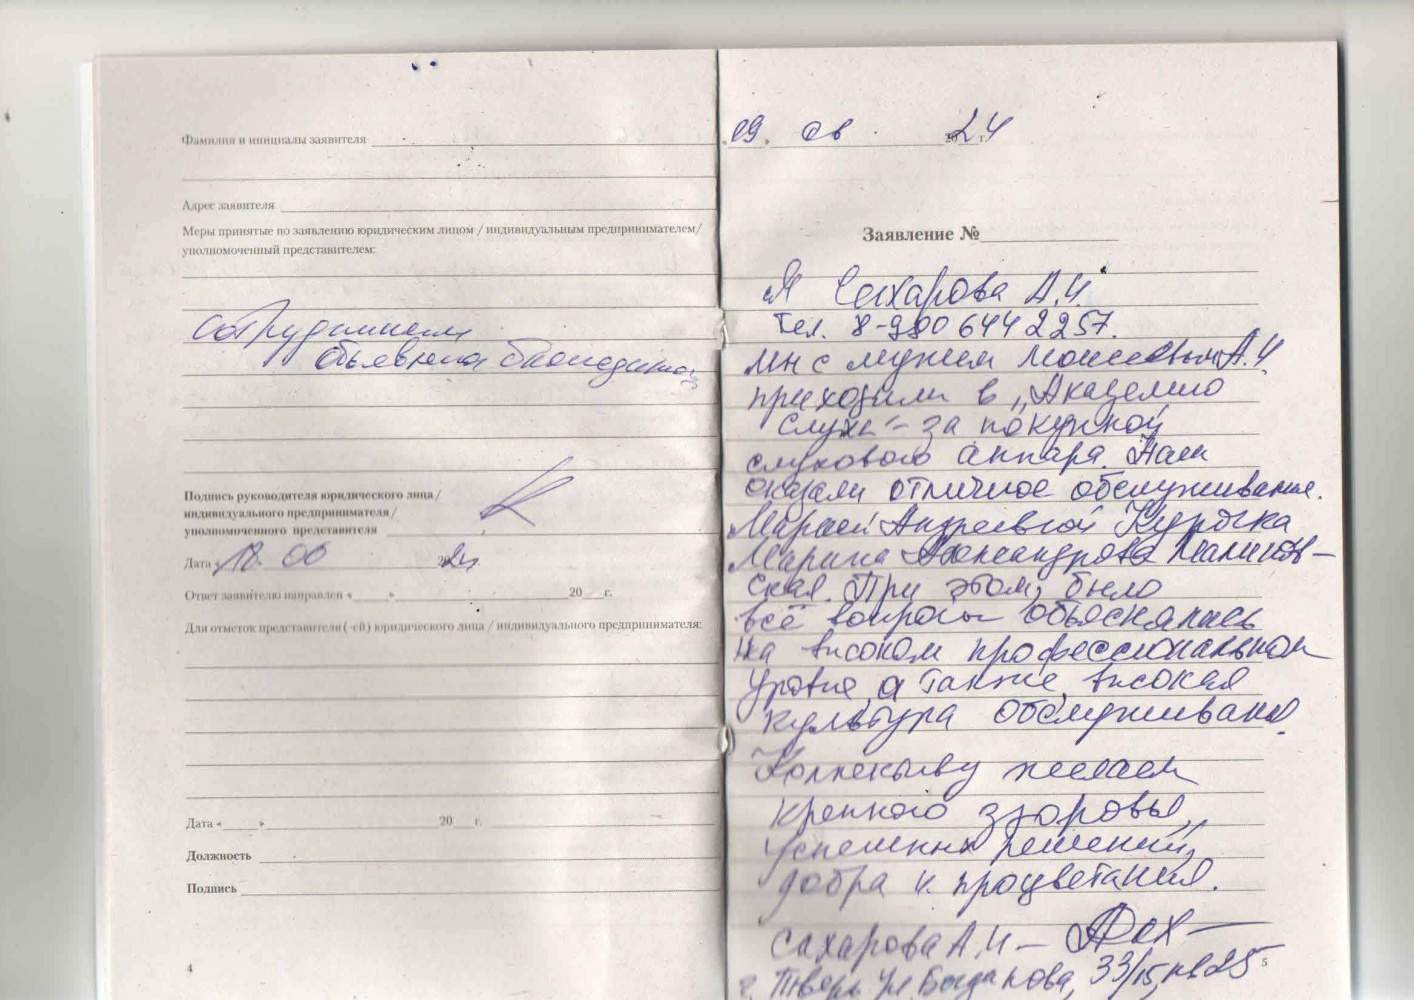 Фамилия и инициалы заявителя
Адрес заявителя
Меры принятые по заявлению юридическим лицом / индивидуальным предпринимателем/
уполномоченный представителем:
Сотрудникам
объявлена благодарность
Подпись руководителя юридического лица/
индивидуального предпринимателя/
уполномоченного представителя
Дата 18. 06 2024
Ответ заявителю направлен «____»____ 20__ г.
Для отметок представителя ( -ей) юридического лица / индивидуального предпринимателя:
Дата «____»____ 20__ г.
Должность
Подпись
4
„09„ 06 2024 г.
Заявление №
Я Сахарова А.И.
тел. 8-980 644 2257.
мы с мужем Моисеевым А.И.
приходили в „Академию
слуха" – за покупкой
слухового аппара. Нам
оказали отличное обслуживание.
Марией Андреевной Курочка
Марина Александровна Малигов-
ская. При этом, было
всё вопросы объяснялись
на высоком профессиональном
уровне, а также, высокая
культура обслуживания.
Коллективу желаем
крепкого здоровья,
успешных решений,
добра и процветания.
Сахарова А.И –
г. Тверь ул. Богданова, 33/15, кв 25
5